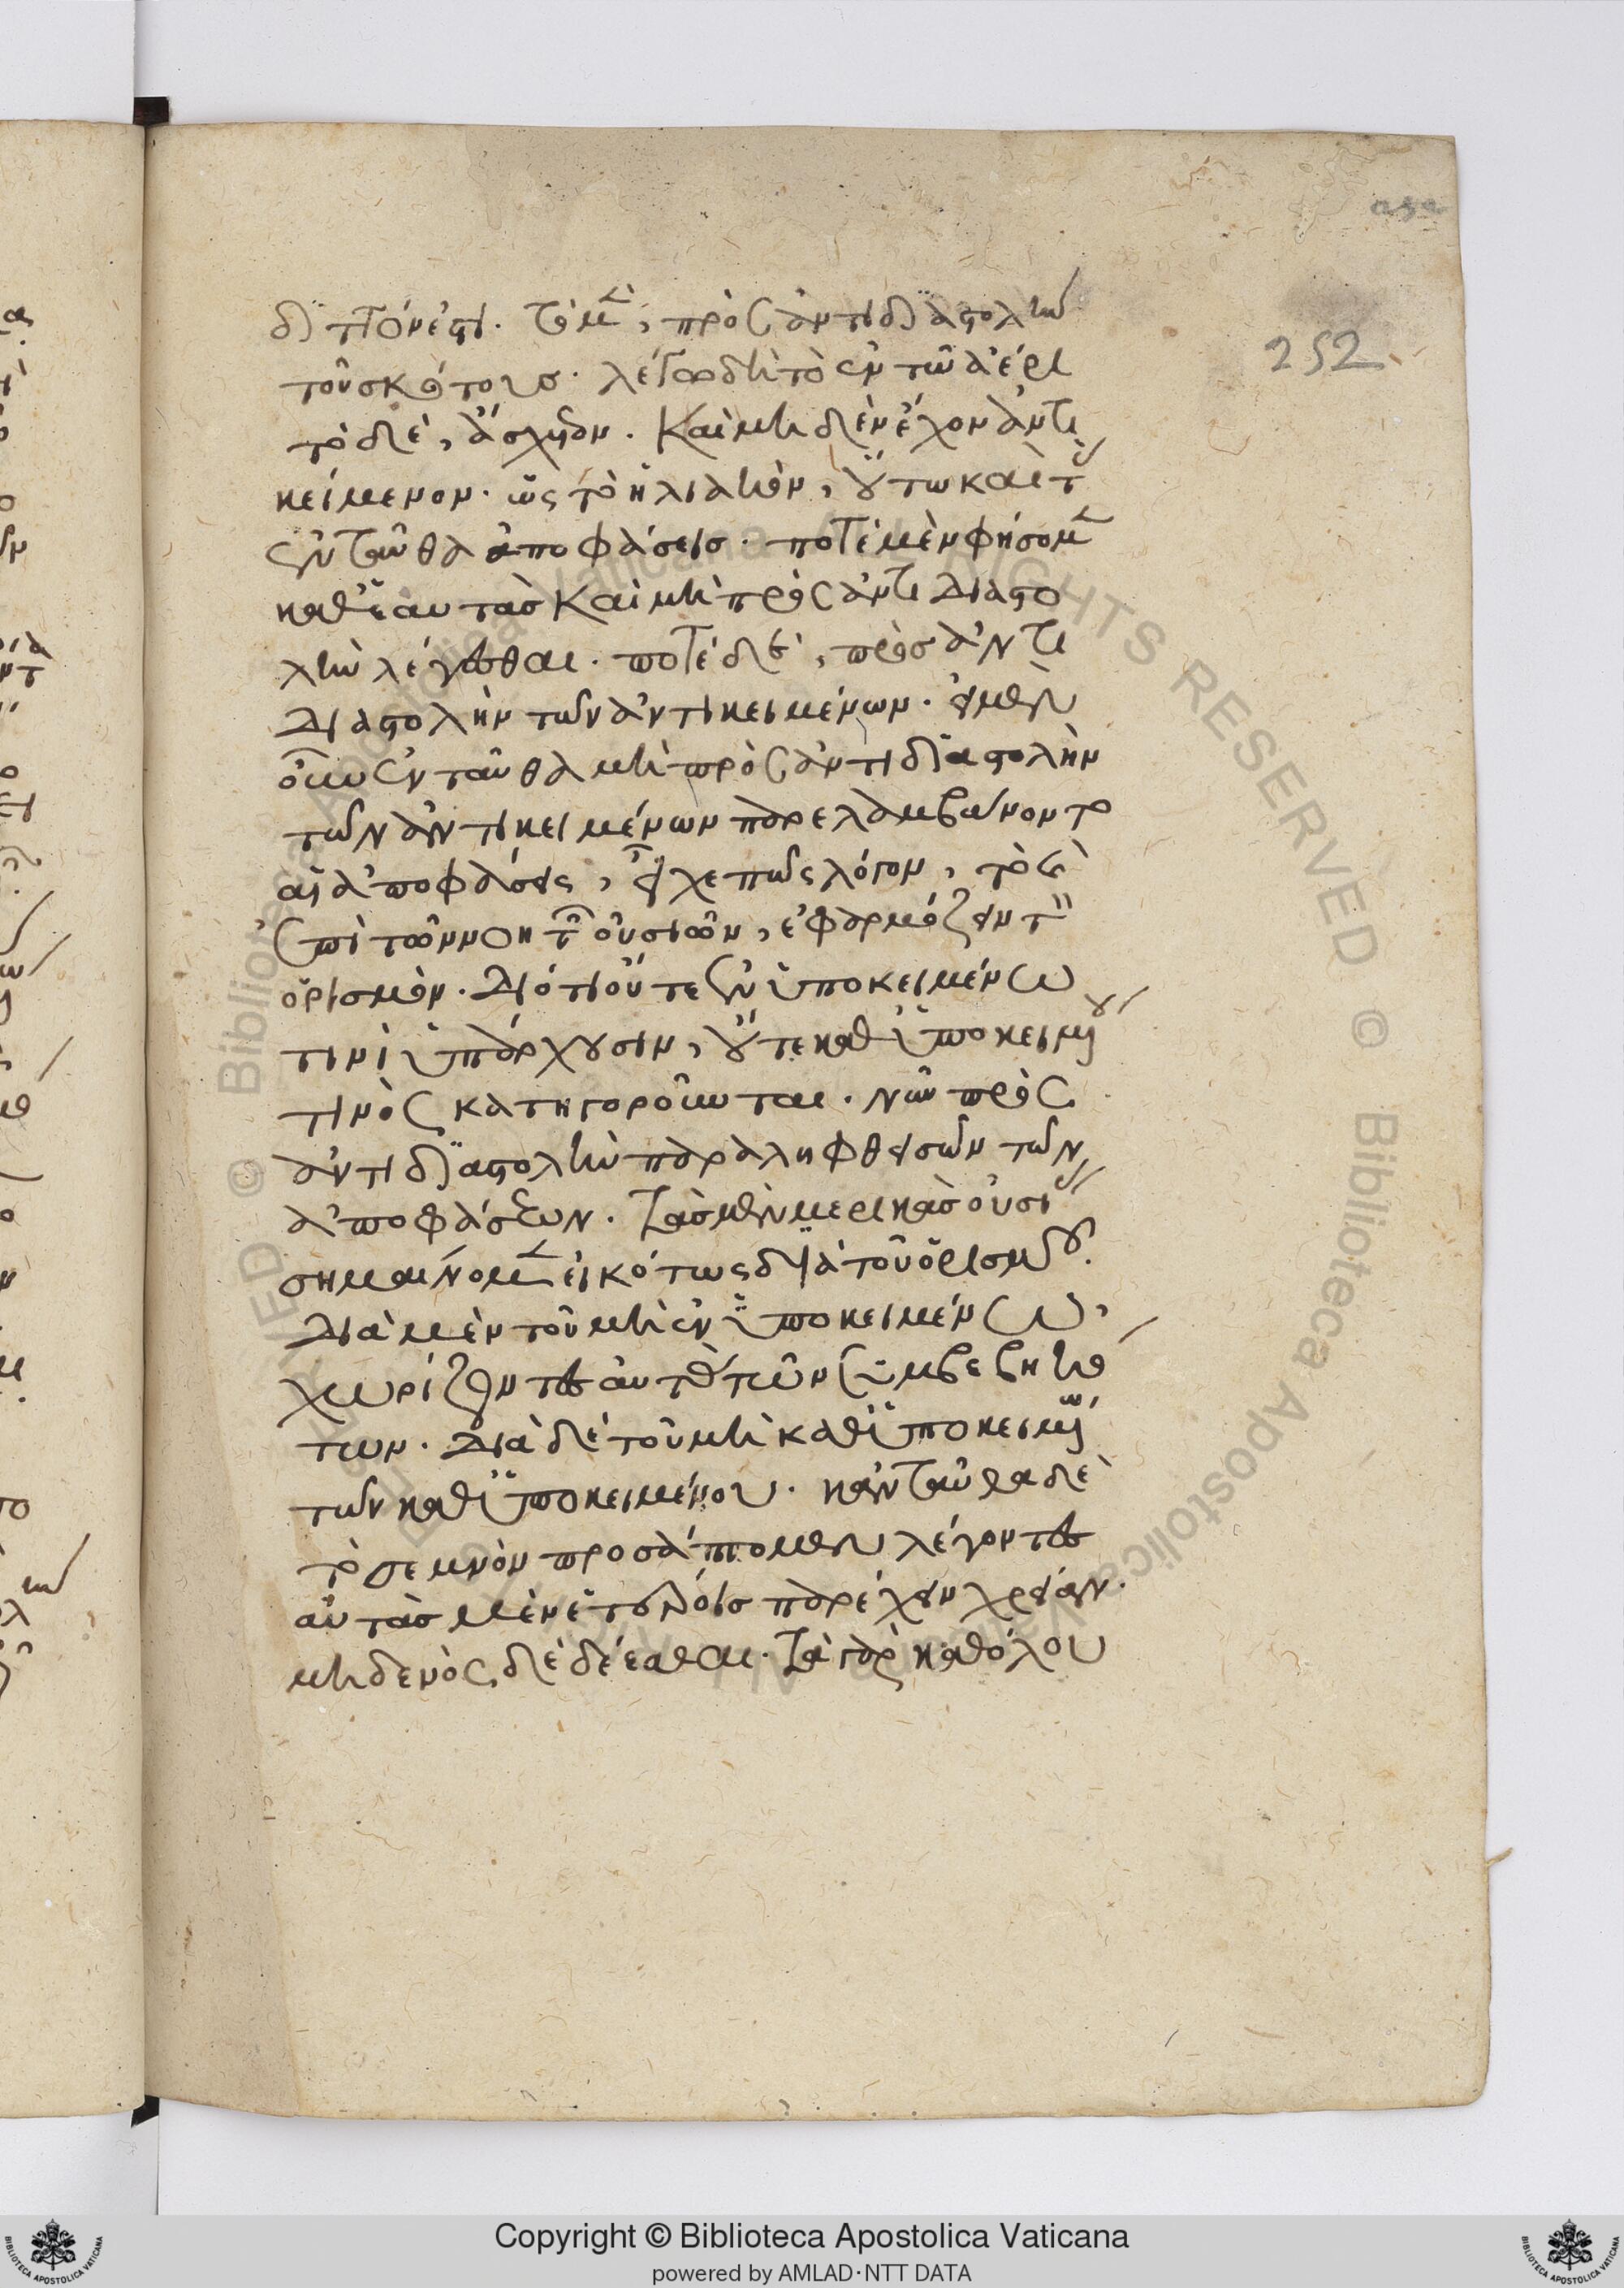 252
διττόν ἐστι. τὸ μὲν, πρὸς ἀντιδιαστολὴν
τοῦ σκότους. λέγω δὴ τὸ ἐν τῶ ἀέρι
τὸ δὲ, ἄσχετον. καὶ μὴ δὲν ἔχον ἀντι
κείμενον. ὡς τὸ ἡλιακὸν, οὕτω καὶ τὰς
ἐνταῦθα ἀποφάσεις. ποτὲ μὲν φήσομεν
καθ' ἑαυτὰς καὶ μὴ πρὸς ἀντιδιαστο
λὴν λέγεσθαι. ποτὲ δὲ, πρὸς ἀντι
διαστολὴν τῶν ἀντικειμένων. εἰ μὲν
οὖν ἐνταῦθα μὴ πρὸς ἀντιδιαστολὴν
τῶν ἀντικειμένων παρελαμβάνοντο
αἱ ἀποφάσεις, εἶχε πως λόγον, τὸ καὶ
ἐπὶ τῶν νοητῶν οὐσιῶν, ἐφαρμόζειν τὸν
ὁρισμόν. διότι οὔτε ἐν ὑποκειμένω
τινὶ ὑπάρχουσιν, οὔτε καθ' ὑποκειμένου
τινὸς κατηγοροῦνται. νῦν πρὸς
ἀντιδιαστολὴν παραληφθεισῶν τῶν
ἀποφάσεων. τὰς μὲν μερικὰς οὐσίας
σημαίνομεν εἰκότως διὰ τοῦ ὁρισμοῦ.
διὰ μὲν τοῦ μὴ ἐν ὑποκειμένω,
χωρίζοντες αὐτὰς τῶν συμβεβηκό
των. διὰ δὲ τοῦ μὴ καθ' ὑποκειμένου
τῶν καθ' ὑποκειμένου. κἀνταῦθα δὲ
τὸ σεμνὸν προσάπτομεν λέγοντες
αὐτὰς μὲν ἑτέροις παρέχειν χρείαν.
μηδενὸς δὲ δέεσθαι. τὰ γὰρ καθόλου
Copyright © Biblioteca Apostolica Vaticana
powered by AMLAD·NTT DATA